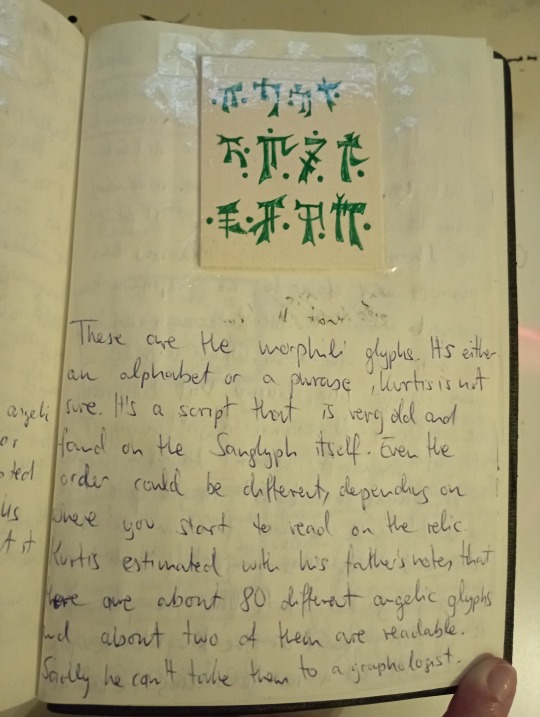 These are the morphili glyphs. It's either
an alphabet or a phrase, Kurtis is not
sure. It's a script that is very old and
found on the Sanglyph itself. Even the
order could be different, depending on
where you start to read on the relic.
Kurtis estimated with his father's notes, that
there are about 80 different angelic glyphs
and about two of them are readable.
Sadly he can't take them to a graphologist.
angelic
or